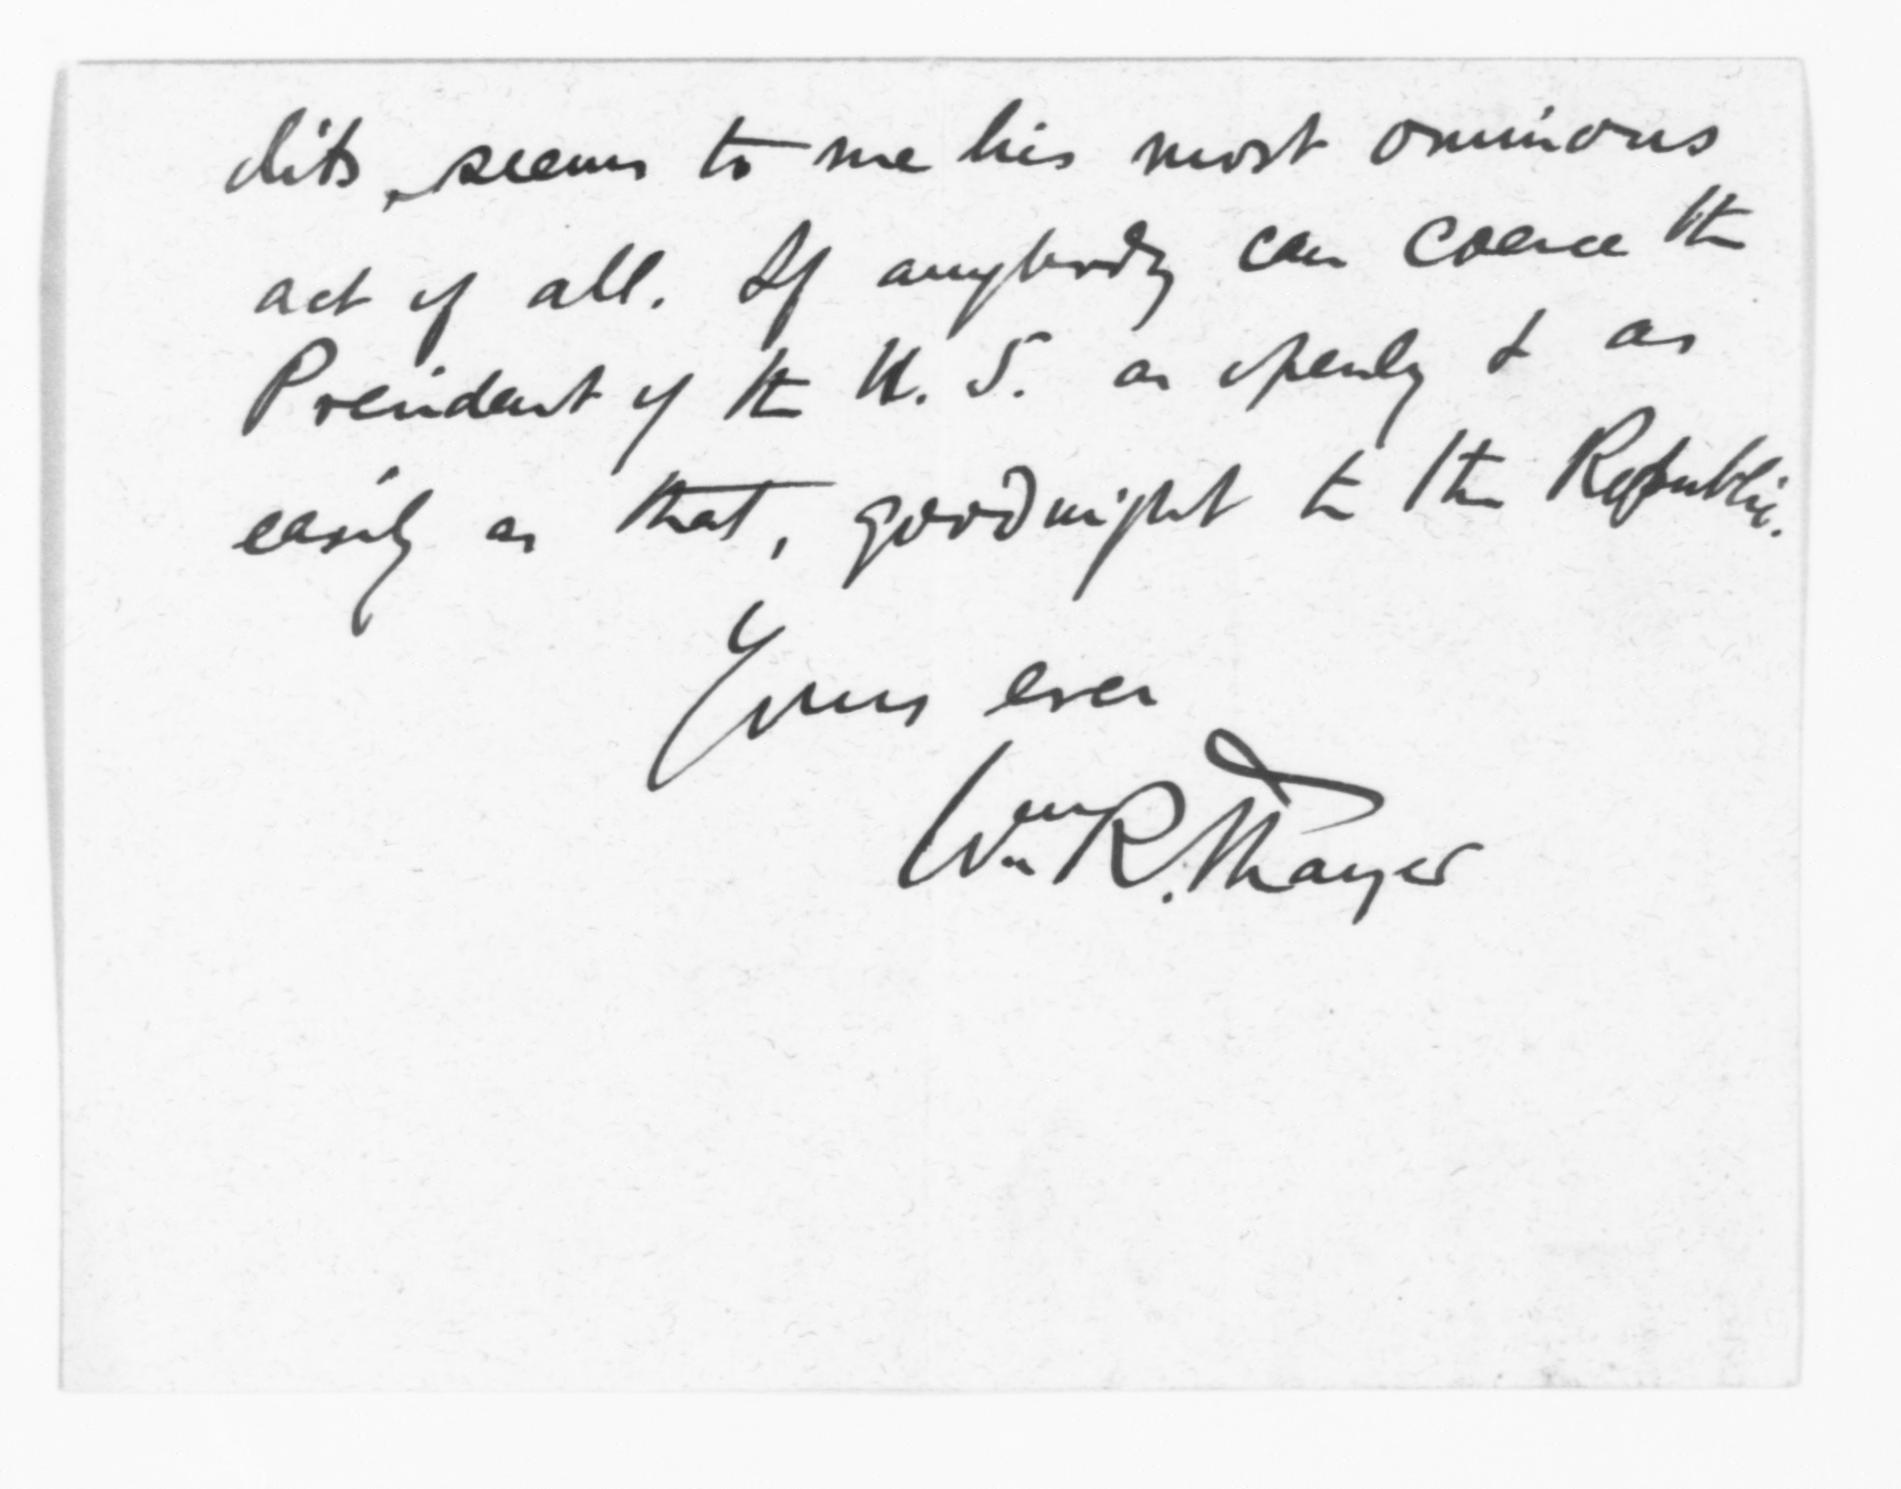 dits, seems to me his most ominous
act of all. If anybody can coerce the
President of the U. S. as openly & as
easily as that, goodnight to the Republic.
Yours ever
Wm R. Thayer